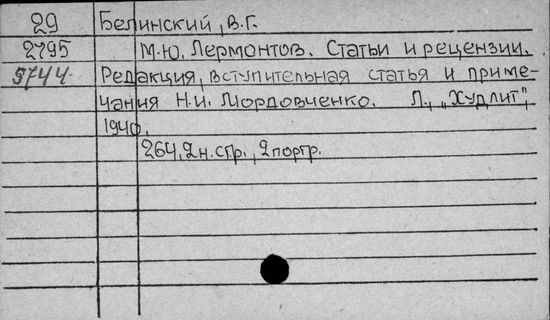 29 Белинский, В.Г.
2795 М.Ю. Лермонтов. Статьи и рецензии.
5744 Редакция, вступительная статья и приме-
чания Н.И. Мордовченко. Л., „Худлит",
1940.
264, 2 н. стр., 2 портр.